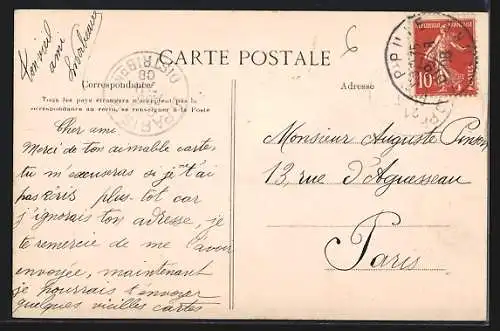 Ton vieil
ami
CARTE POSTALE
Correspondance
Adresse
Tous les pays étrangers n'acceptent pas la
correspondance au recto, se renseigner à la Poste
PARIS
DISTRIBUTION
08
10
6
Cher ami
Merci de ton aimable carte,
tu m'excuseras si je t'ai
pas écris plus-tôt car
j'ignorais ton adresse, je
te remercie de me l'avoir
envoyée, maintenant
je pourrais t'envoyer
quelques vieilles cartes
Monsieur Auguste
13, rue d'Aguesseau
Paris